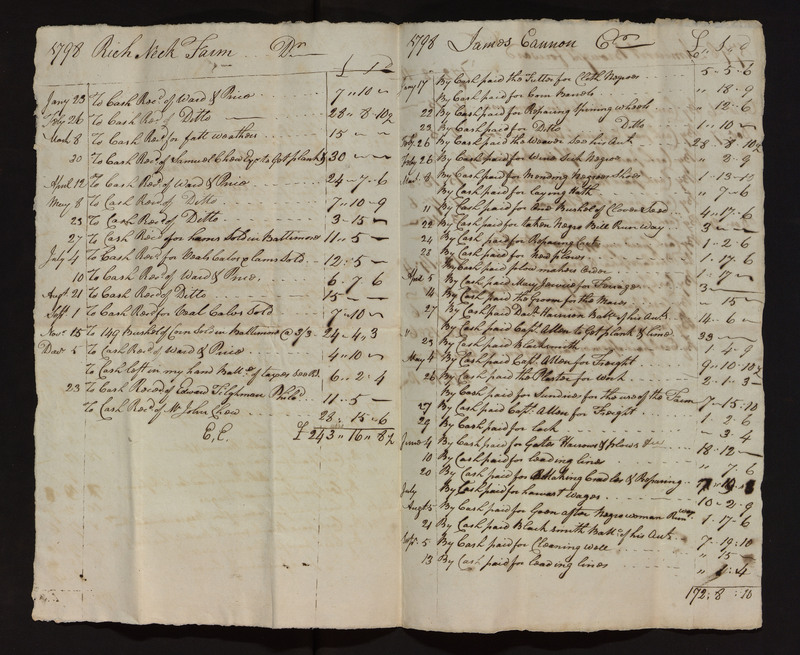 1798 Rich Neck Farm Dr
£ s d
Jany 23 To Cash Recd of Ward & Price 7 " 10 " —
Feby 26 To Cash Recd of Ditto 28 " 8 " 10½
March 8 To Cash Recd for fatt weathers 15 — —
20 To Cash Recd of Samuel Chew Esqr to Get plank & 30 — —
April 12 To Cash Recd of Ward & Price 24 - 7 - 6
May 8 To Cash Recd of Ditto 7 " 10 - 9
23 To Cash Recd of Ditto 3 - 15 —
27 To Cash Recd for hams Sold in Baltimore 11 " 5 —
July 4 To Cash Recd for Veals Calves & lams Sold 12 : 5 —
10 To Cash Recd of Ward & Price 6 - 7 . 6
Augt 21 To Cash Recd of Ditto 15 — —
Sept 1 To Cash Recd for Veal Calves Sold 7 " 10 —
Novr 15 To 149 Bushel of Corn Sold in Baltimore @ 3/3 24 " 4 " 3
Decr 5 To Cash Recd of Ward & Price 4 " 10 —
To Cash left in my hand Balle of taxes 6 " 2 : 4
23 To Cash Recd of Edward Tilghman Philada 11 " 5 —
To Cash Recd of Mr John Chew 28 " 15 " 6
E, E. £ 243 " 16 " 8½
1798 James Cannon Cr
£ s d
Jany 17 By Cash paid the Fuller for Cloth Negroes 5 " 5 " 6
By Cash paid for Corn Barrels " 18 . 9
22 By Cash paid for Repairing Spining wheels " 12 " 6
23 By Cash paid for Ditto Ditto 1 " 10 —
Feby 26 By Cash paid the Weaver See his Act. 28 - 8 . 10½
Feby 26 By Cash paid for Wine Sick Negroe " 3 . 9
March 8 By Cash paid for Mending Negroes Shoes 1 - 13 - 1½
By Cash paid for laying Hath " 7 " 6
11 By Cash paid for one Bushel of Clover Seed 4 " 17 " 6
22 By Cash paid for taken Negro Bill Run Way 3 — —
24 By Cash paid for Repairing Carts 1 . 2 . 6
28 By Cash paid for two plows 1 . 17 . 6
By Cash paid plow makers 1 " 17 —
April 5 By Cash paid May Service for Forage 3 — —
14 By Cash paid the groom for the Mares — 15 —
27 By Cash paid Davd Harrison Ball of his Act. 14 . 6 —
" By Cash paid Capt. Allen to Get plank & lime 33 — —
23 By Cash paid Blacksmith 1 . 4 . 9
May 4 By Cash paid Capt. Allen for Freight 9 " 10 . 10½
26 By Cash paid the Plaster for Work 2 . 1 . 3
By Cash paid for Sundries for the use of the Farm 7 — 15 . 10
27 By Cash paid Capt. Allen for Freight 1 . 2 . 6
29 By Cash paid for Lock — 3 . 4
June 4 By Cash paid for Gates Harrows & plows &c 18 . 12 —
10 By Cash paid for leading lines " 7 . 6
20 By Cash paid for Making Cradles & Repairing
July By Cash paid for harvest Wages 10 - 2 . 9
Augt 5 By Cash paid for Goen after Negro woman Run way 1 . 17 . 6
21 By Cash paid Black smith Ball. of his Act. 7 . 19 : 10
Sept. 5 By Cash paid for Cleaning Well " 15 —
13 By Cash paid for leading lines " 4 : 4
172 : 8 : 10